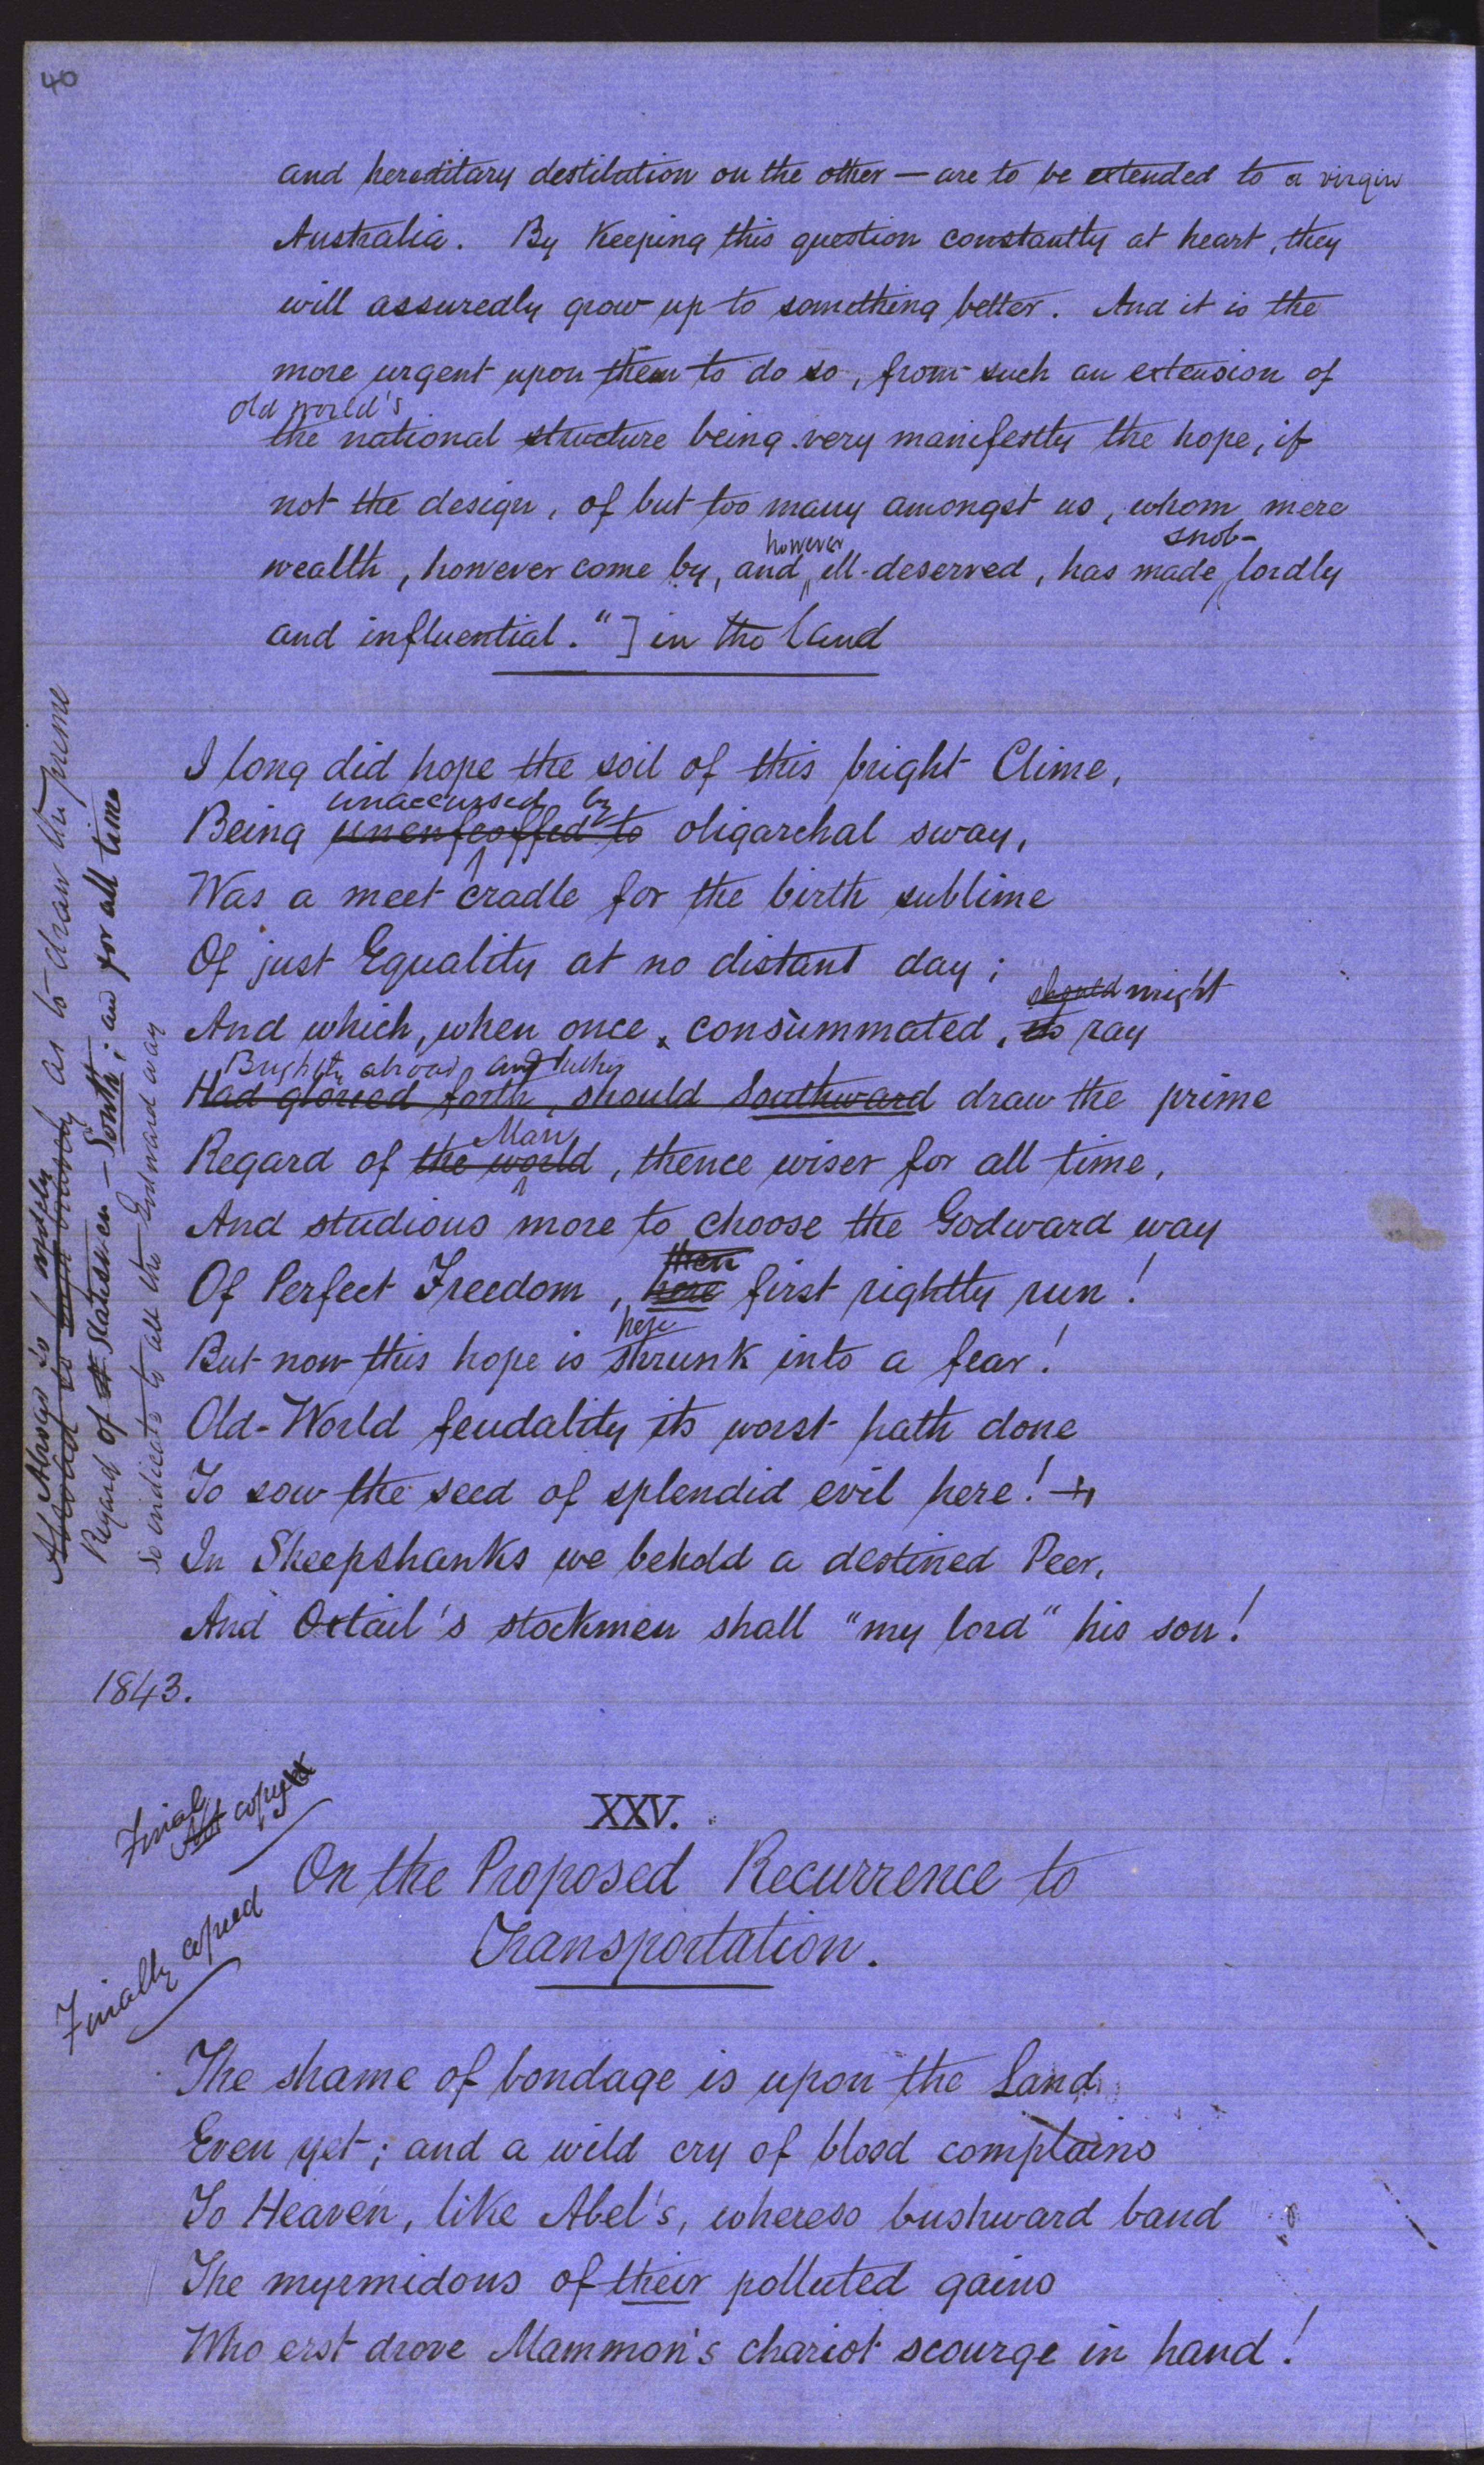 40
and hereditary destitution on the other — are to be extended to a virgin
Australia. By keeping this question constantly at heart, they
will assuredly grow up to something better. And it is the
more urgent upon them to do so, from such an extension of
old world's
the national structure being very manifestly the hope, if
not the design, of but too many amongst us, whom mere
however snob-
wealth, however come by, and ill-deserved, has made lordly
and influential." ] in the land
I long did hope the soil of this bright Clime,
unaccursed by
Being unenfeoffed to oligarchal sway,
Was a meet cradle for the birth sublime
Of just Equality at no distant day;
should might
And which, when once consummated, its ray
Brightly abroad, and hither
Had gloried forth, should Southward draw the prime
Man
Regard of the world, thence wiser for all time,
And studious more to choose the Godward way
then
Of Perfect Freedom, here first rightly run!
here
But now this hope is shrunk into a fear!
Old-World feudality its worst hath done
To sow the seed of splendid evil here! +
In Sheepshanks we behold a destined Peer,
And Oxtail's stockmen shall "my lord" his son!
1843.
Abroad so widely as to draw the prime
Regard of Statesmen — South; and for all time
So indicate to all the Endward way
Final
Not copy
Finally copied
XXV.
On the Proposed Recurrence to
Transportation.
The shame of bondage is upon the Land
Even yet; and a wild cry of blood complains
To Heaven, like Abel's, whereso bushward band
The myrmidons of their polluted gains
Who erst drove Mammon's chariot scourge in hand!